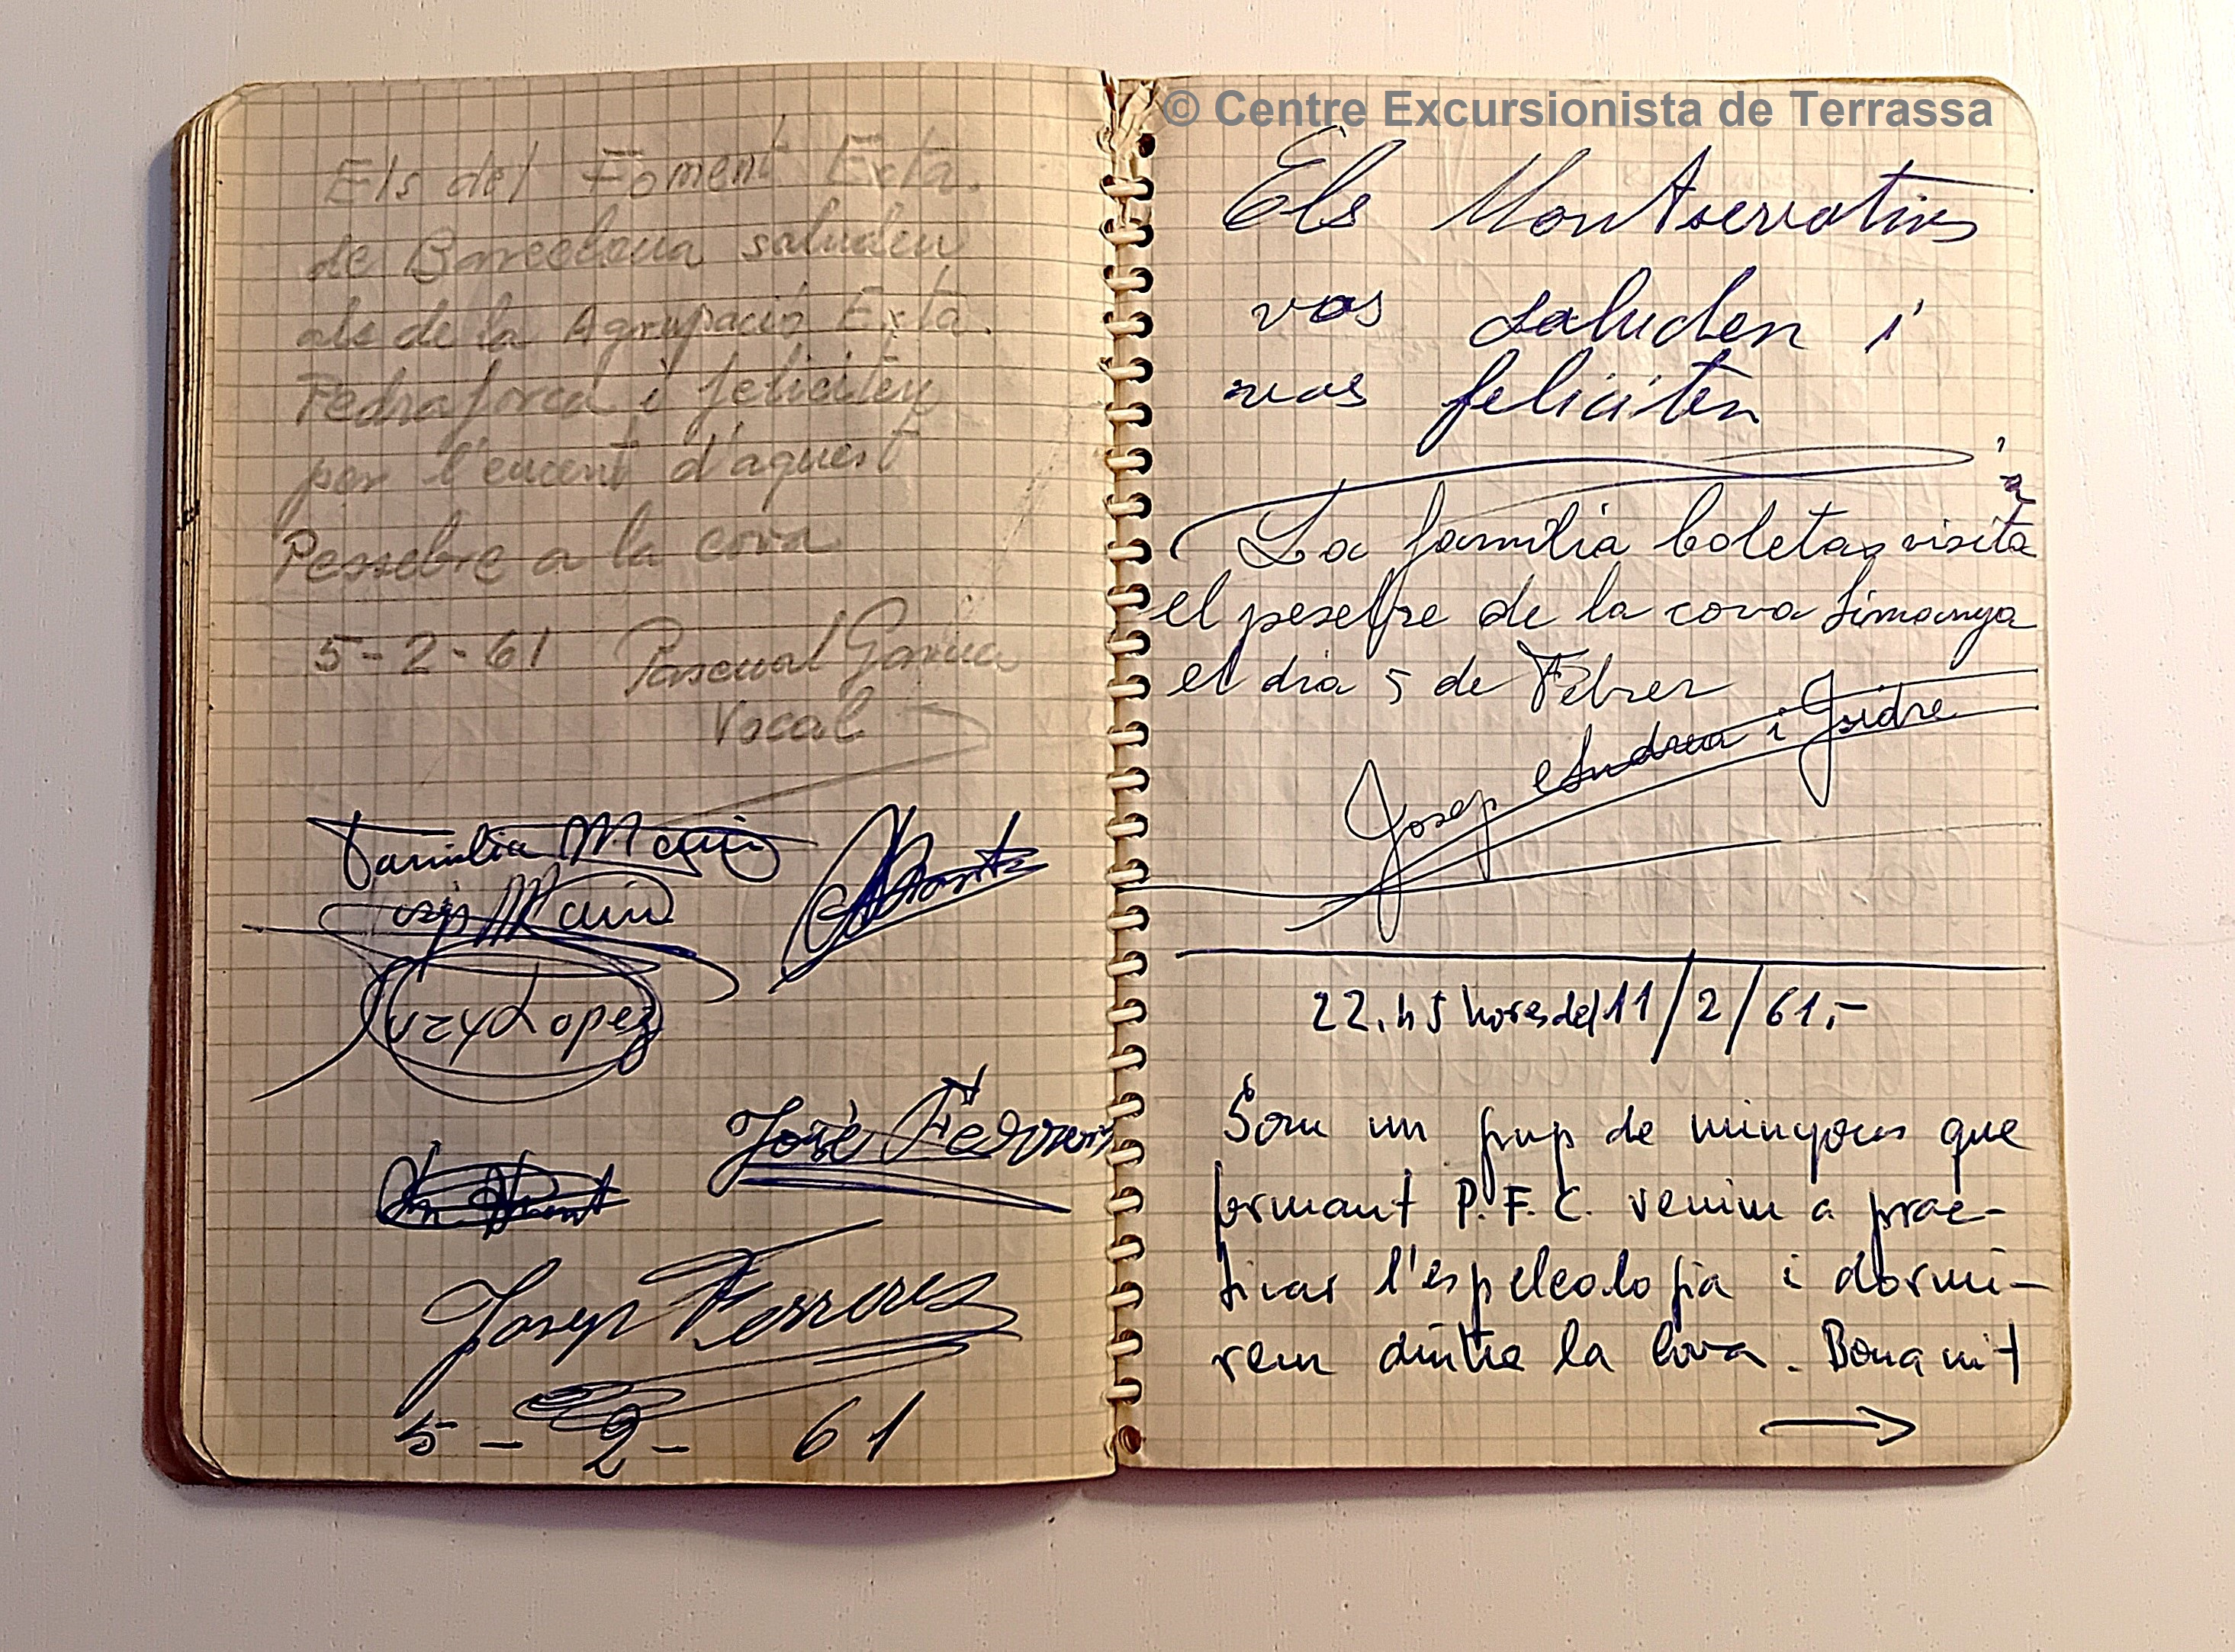 Els del Foment Exta.
de Barcelona saluden
als de la Agrupació Exta.
Pedraforca i feliciten
per l'encert d'aquest
Pessebre a la cova
5-2-61 Pascual
Vocal
Familia
Suzy Lopez
José
Josep Ferreres
5-2-61
© Centre Excursionista de Terrassa
Els Montserratins
vos saluden i
vos feliciten
La familia boletas visita
el pesebre de la cova Simanya
el dia 5 de Febrer
Josep Andreu i Jridre
22.45 hores del 11/2/61.-
Som un grup de minyons que
formant P.F.C. venim a prac-
ticar l'espeleologia i dormi-
rem dintre la Cova. Bona nit
→